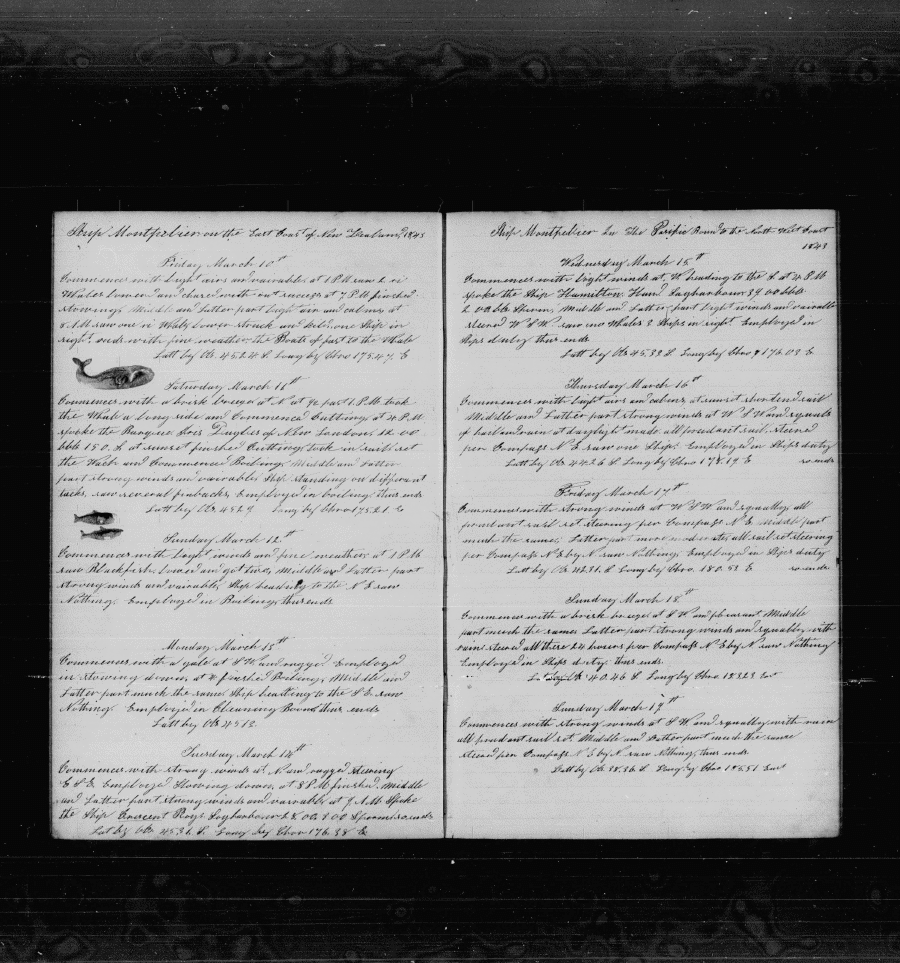 Ship Montpelier on the East Coast of New Zealand 1843
Friday March 10th
Commences with Light airs and variable at 1 PM saw
Whales lowered and chased with out success at 7 PM finished
stowing Middle and Latter part Light air and calms at
8 AM saw one Whale Lower struck and one Ship in
sight ends with fine weather the Boats fast to the Whale
Latt by Ob 45.24 S Long by Chro 175.47 E
Saturday March 11th
Commences with a brisk breeze at N at ½ past 1 PM took
the Whale a Long side and Commenced Cutting at 4 PM
spoke the Barque of New London 1200
bbls 150 S at sunset finished Cutting took in sail set
the Watch and Commenced Boiling Middle and Latter
part strong winds and variable Ship standing on different
tacks saw several finbacks Employed in boiling thus ends
Latt by Ob 45.29 Long by Chro 175.21 E
Sunday March 12th
Commences with Light winds and fine weather at 1 PM
saw Blackfish Lowered and got two, Middle and Latter part
strong winds and variable, Ship heading to the N E saw
Nothing Employed in Boiling, thus ends
Monday March 13th
Commences with a gale at S W and rugged Employed
in stowing down at 4 finished Boiling, Middle and
Latter part much the same Ship heading to the S E saw
Nothing Employed in Cleaning Bone thus ends
Latt by Ob 45.12
Tuesday March 14th
Commences with strong winds at N and rugged steering
E S E Employed Stowing down, at 8 PM finished Middle
and Latter part strong winds and variable at 7 AM Spoke
the Ship Crescent Sagharbour 300 Sperm so ends
Lat by Ob 45.31 S Long by Chro 176.38 E
Ship Montpelier In The Pacific Bound to the North West Coast
1843
Wednesday March 15th
Commences with Light winds at W heading to the S at 4 PM
spoke the Ship Hamilton Hand Sagharbour 3900 bbls
200 bbls Sperm, Middle and Latter part Light winds and variable
steered W S W saw no Whales 3 Ships in sight Employed in
Ships duty thus ends
Latt by Ob 45.32 S Long by Chro 176.03 E
Thursday March 16th
Commences with Light airs and calms at sunset shortened sail
Middle and Latter part strong winds at W S W and squalls
of hail and rain at daylight made all prudent sail, steered
per Compass N E saw one Ship. Employed in Ships duty
Latt by Ob 44.26 S Long by Chro 178.19 E so ends
Friday March 17th
Commences with strong winds at W S W and squally, all
prudent sail set steering per Compass N E Middle part
much the same, Latter part more moderate, all sail set steering
per Compass N E by N saw Nothing, Employed in Ships duty
Latt by Ob 42.31 S Long by Chro 180.53 E so ends
Sunday March 18th
Commences with a brisk breeze at S W and pleasant, Middle
part much the same Latter part strong winds and squally, with
rain steered all these 24 hours per Compass N E by N saw Nothing
Employed in Ships duty thus ends
Latt by Ob 40.46 S Long by Chro 183.23 East
Sunday March 19th
Commences with strong winds at S W and squally with rain
all prudent sail set, Middle and Latter part much the same
steered per Compass N E by N saw Nothing, thus ends
Latt by Ob 38.36 S Long by Chro 185.51 East